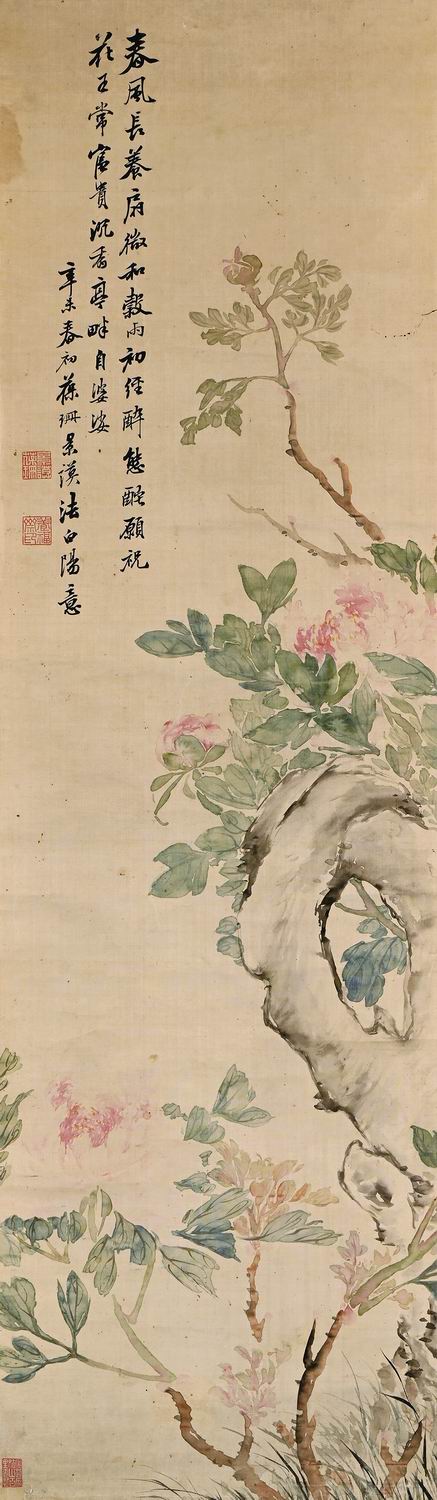 春風長養扇微和穀雨初經醉態酡願祝
花王常富貴沉香亭畔自婆娑
辛未春初葆珊景謨法白陽意